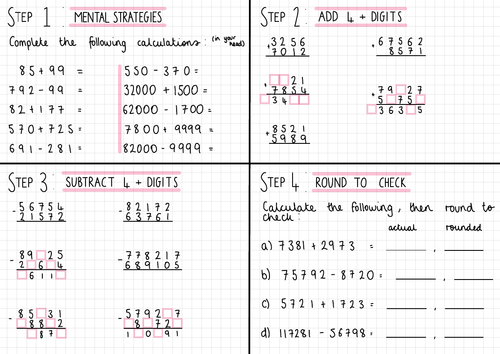 STEP 1 MENTAL STRATEGIES
Complete the following calculations: (in your head)
85 + 99 =
792 - 99 =
82 + 177 =
570 + 725 =
691 - 281 =
550 - 370 =
32000 + 1500 =
62000 - 1700 =
7800 + 9999 =
82000 - 9999 =
STEP 2 ADD 4 + DIGITS
+ 3256
7012
+ 67562
8571
21
+ 7854
34
79 27
+ 5 75
363 5
+ 8521
5989
STEP 3 SUBTRACT 4 + DIGITS
- 56754
21572
- 82172
63761
- 89 25
2 6 4
611
- 778217
689105
- 85 31
88 2
87
- 5792 7
8 72
1 0 91
STEP 4 ROUND TO CHECK
Calculate the following, then round to
check:
actual rounded
a) 7381 + 2973 = ,
b) 75792 - 8720 = ,
c) 5721 + 1723 = ,
d) 117281 - 56798 = ,